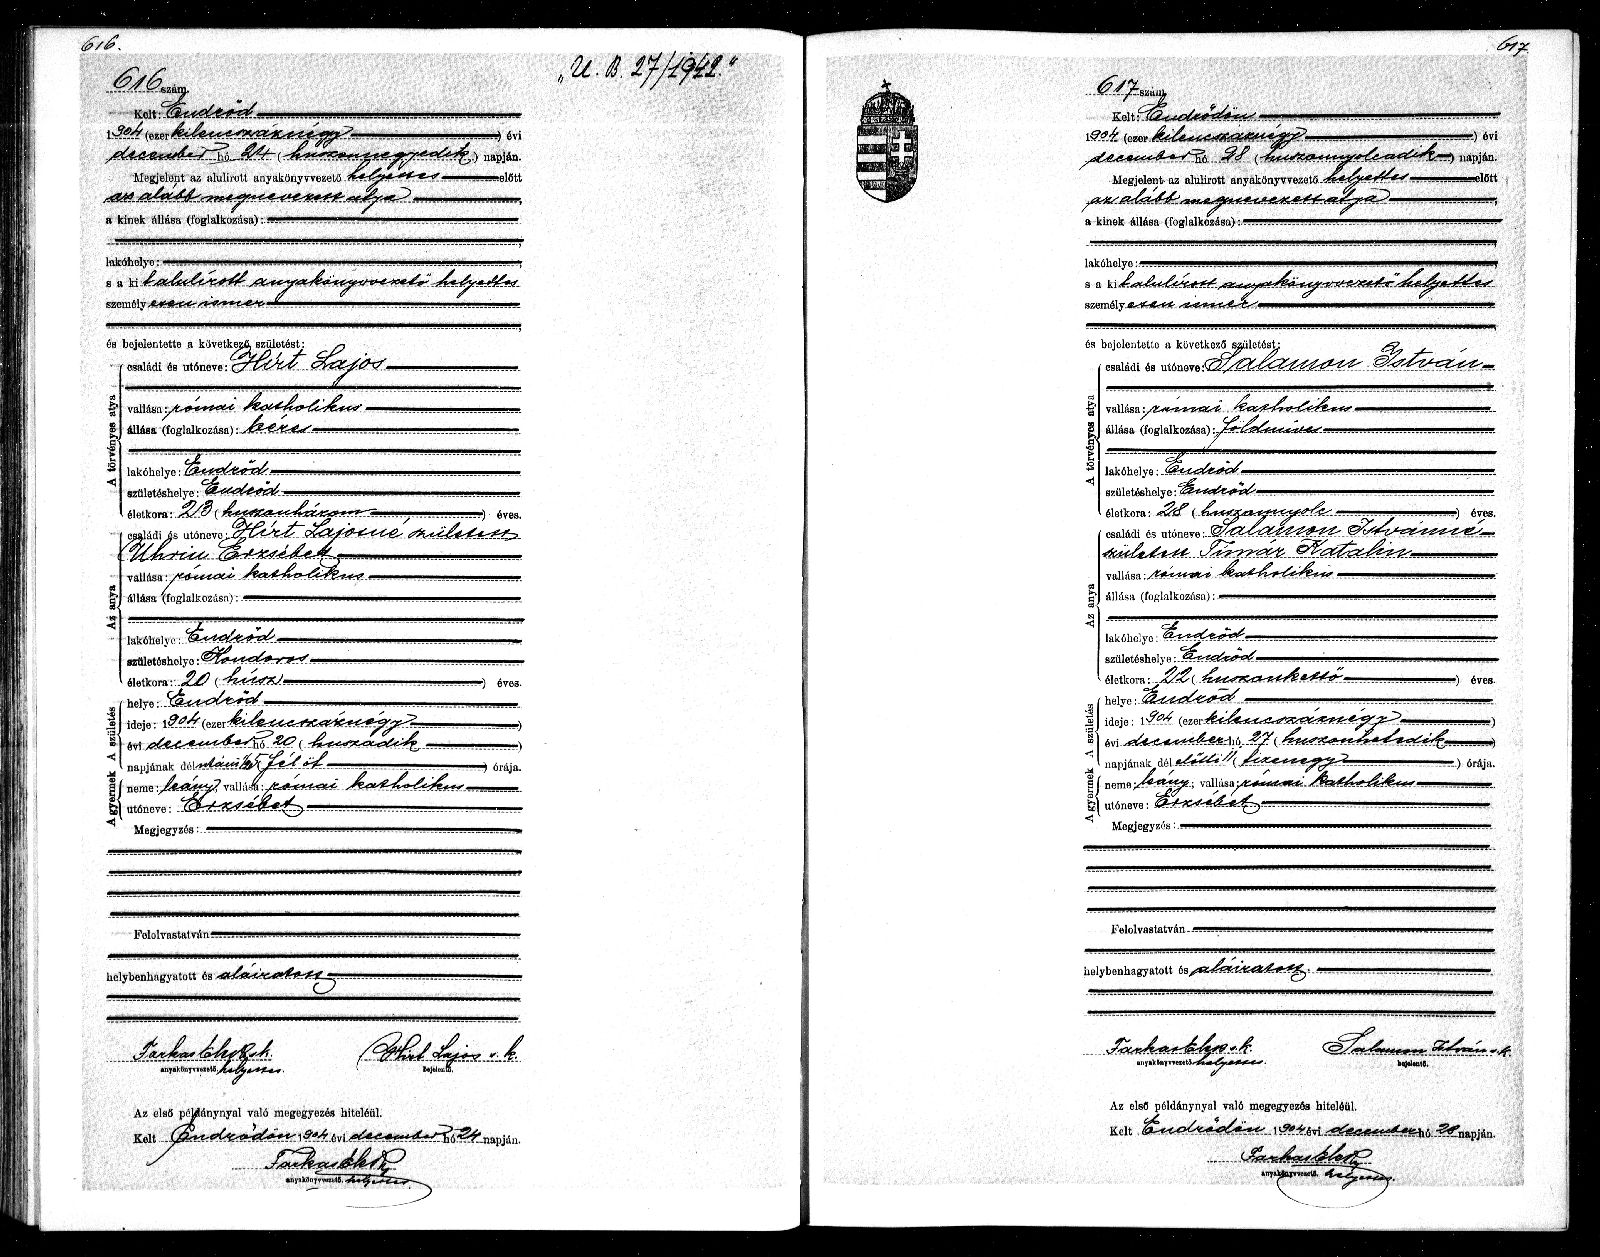 616.
„U. B. 27/1942."
616 szám.
Kelt: Endrőd
1904 (ezer kilenczszáznégy) évi
december hó 24 (huszonnegyedik) napján.
Megjelent az alulirott anyakönyvvezető helyettes előtt
az alább megnevezett atya,
a kinek állása (foglalkozása):
lakóhelye:
s a kit alulírott anyakönyvvezető helyettes
személyesen ismer
és bejelentette a következő születést:
A törvényes atya
családi és utóneve: Hírt Lajos
vallása: római katholikus
állása (foglalkozása): béres
lakóhelye: Endrőd
születéshelye: Endrőd
életkora: 23 (huszonhárom) éves.
Az anya
családi és utóneve: Hírt Lajosné született
Uhrin Erzsébet
vallása: római katholikus
állása (foglalkozása):
lakóhelye: Endrőd
születéshelye: Kondoros
életkora: 20 (húsz) éves.
A születés
helye: Endrőd
ideje: 1904 (ezer kilenczszáznégy)
évi december hó 20 (huszadik)
napjának dél után (fél öt) órája.
A gyermek
neme: leány; vallása: római katholikus
utóneve: Erzsébet
Megjegyzés:
Felolvastatván
helybenhagyatott és aláiratott
Farkas Elek s. k. Hirt Lajos s. k.
anyakönyvvezető helyettes. bejelentő.
Az első példánynyal való megegyezés hiteléül.
Kelt Endrődön 1904 évi december hó 24 napján.
Farkas Elek
anyakönyvvezető. helyettes
617.
617 szám.
Kelt: Endrődön
1904 (ezer kilenczszáznégy) évi
december hó 28 (huszonnyolcadik) napján.
Megjelent az alulirott anyakönyvvezető helyettes előtt
az alább megnevezett atya,
a kinek állása (foglalkozása):
lakóhelye:
s a kit alulírott anyakönyvvezető helyettes
személyesen ismer
és bejelentette a következő születést:
A törvényes atya
családi és utóneve: Salamon István
vallása: római katholikus
állása (foglalkozása): földmíves
lakóhelye: Endrőd
születéshelye: Endrőd
életkora: 28 (huszonnyolc) éves.
Az anya
családi és utóneve: Salamon Istvánné
született Tímár Katalin
vallása: római katholikus
állása (foglalkozása):
lakóhelye: Endrőd
születéshelye: Endrőd
életkora: 22 (huszonkettő) éves.
A születés
helye: Endrőd
ideje: 1904 (ezer kilenczszáznégy)
évi december hó 27 (huszonhetedik)
napjának dél előtti 11 (tizenegy) órája.
A gyermek
neme: leány; vallása: római katholikus
utóneve: Erzsébet
Megjegyzés:
Felolvastatván
helybenhagyatott és aláiratott.
Farkas Elek s. k. Salamon István s. k.
anyakönyvvezető. helyettes. bejelentő.
Az első példánynyal való megegyezés hiteléül.
Kelt Endrődön 1904 évi december hó 28 napján.
Farkas Elek
anyakönyvvezető. helyettes.